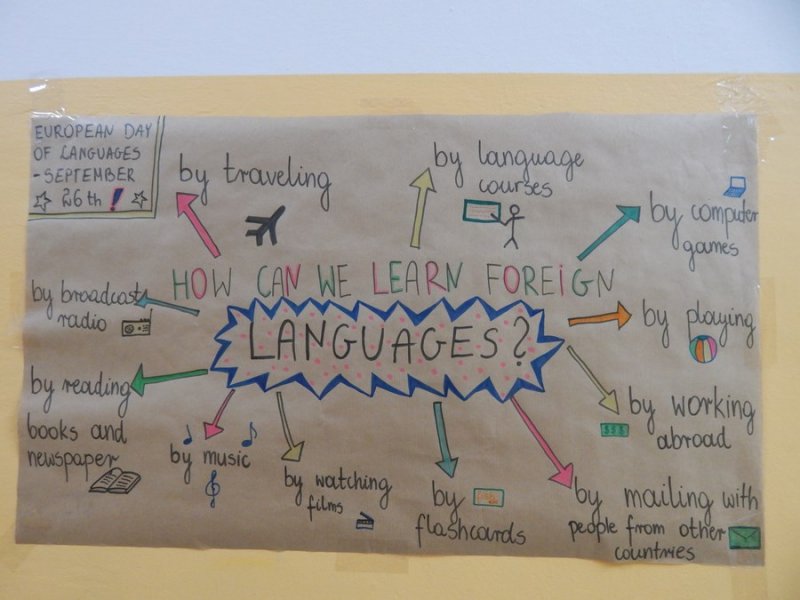 EUROPEAN DAY
OF LANGUAGES
-SEPTEMBER
26th!
by traveling
by language
courses
by computer
games
HOW CAN WE LEARN FOREIGN
LANGUAGES?
by broadcasts
radio
by playing
by reading
books and
newspaper
by working
abroad
by music
by watching
films
by
flashcards
by mailing with
people from other
countries